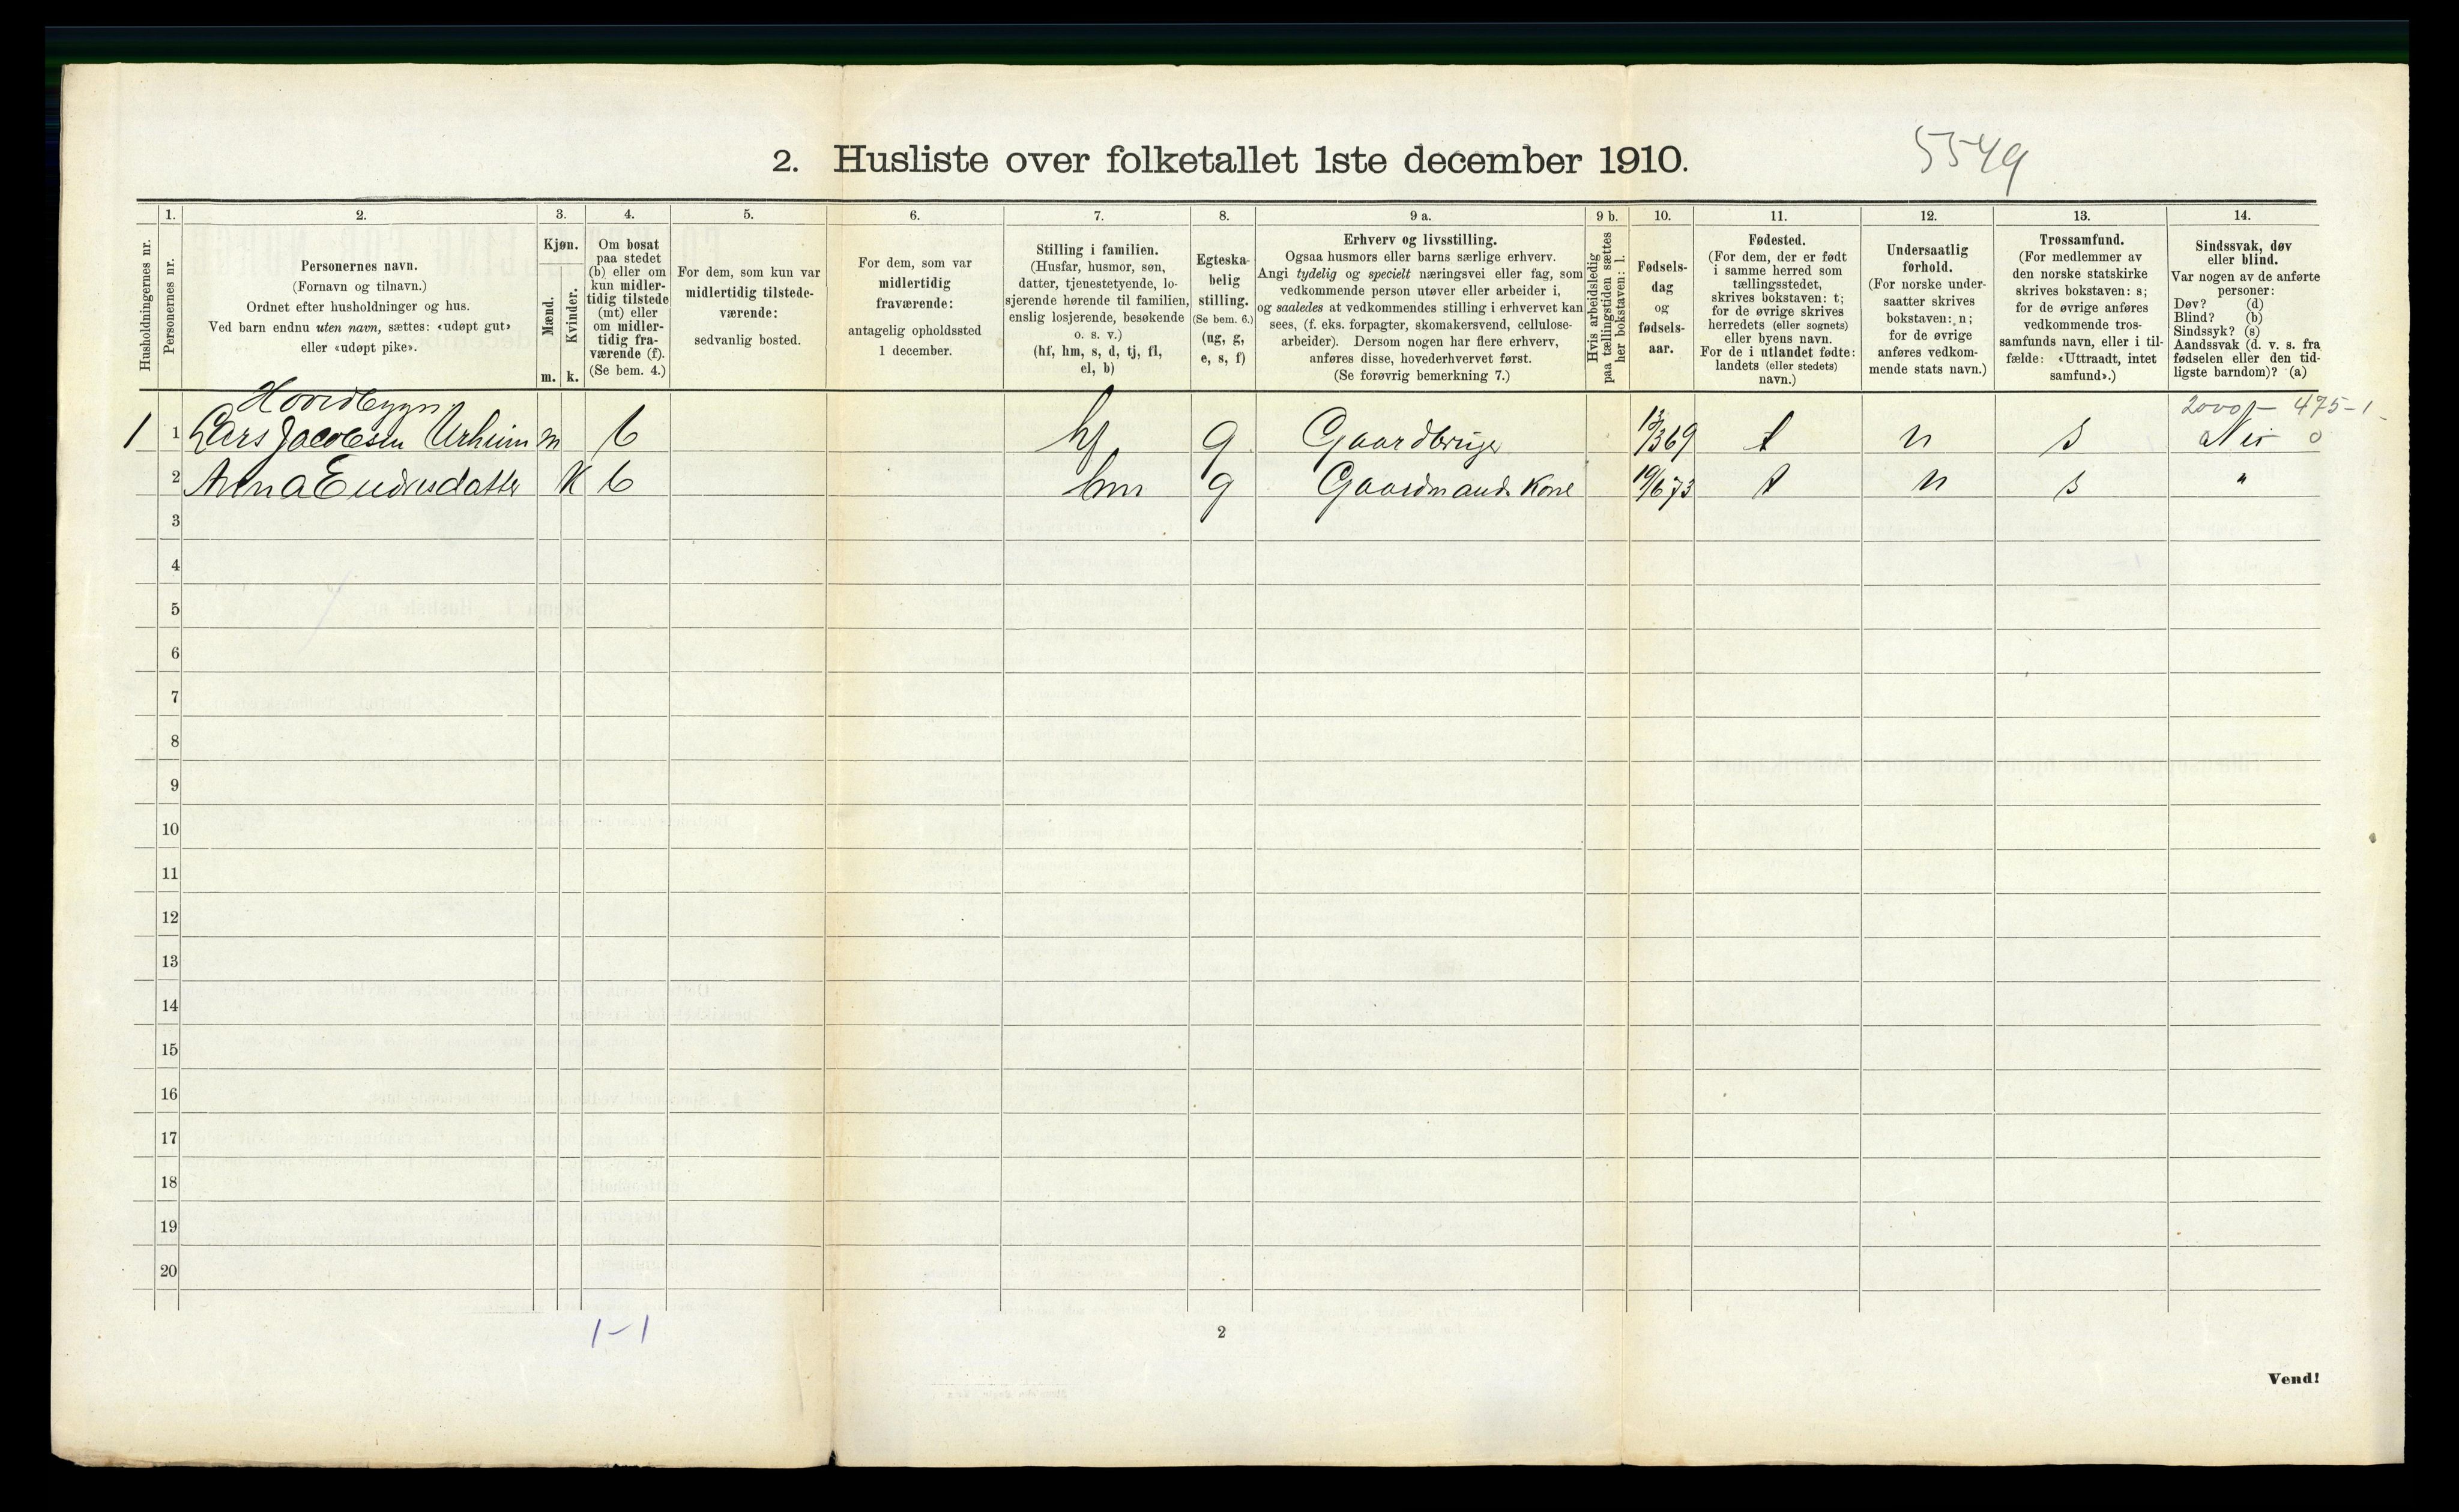 2. Husliste over folketallet 1ste december 1910.
5549
Husholdningernes nr.
1.
Personernes nr.
2.
Personernes navn.
(Fornavn og tilnavn.)
Ordnet efter husholdninger og hus.
Ved barn endnu uten navn, sættes: «udøpt gut»
eller «udøpt pike».
3.
Kjøn.
Mænd.
Kvinder.
m. k.
4.
Om bosat
paa stedet
(b) eller om
kun midler-
tidig tilstede
(mt) eller
om midler-
tidig fra-
værende (f).
(Se bem. 4.)
5.
For dem, som kun var
midlertidig tilstede-
værende:
sedvanlig bosted.
6.
For dem, som var
midlertidig
fraværende:
antagelig opholdssted
1 december.
7.
Stilling i familien.
(Husfar, husmor, søn,
datter, tjenestetyende, lo-
sjerende hørende til familien,
enslig losjerende, besøkende
o. s. v.)
(hf, hm, s, d, tj, fl,
el, b)
8.
Egteska-
belig
stilling.
(Se bem. 6.)
(ug, g,
e, s, f)
9 a.
Erhverv og livsstilling.
Ogsaa husmors eller barns særlige erhverv.
Angi tydelig og specielt næringsvei eller fag, som
vedkommende person utøver eller arbeider i,
og saaledes at vedkommendes stilling i erhvervet kan
sees, (f. eks. forpagter, skomakersvend, cellulose-
arbeider). Dersom nogen har flere erhverv,
anføres disse, hovederhvervet først.
(Se forøvrig bemerkning 7.)
9 b.
Hvis arbeidsledig
paa tællingstiden sættes
her bokstaven: l.
10.
Fødsels-
dag
og
fødsels-
aar.
11.
Fødested.
(For dem, der er født
i samme herred som
tællingsstedet,
skrives bokstaven: t;
for de øvrige skrives
herredets (eller sognets)
eller byens navn.
For de i utlandet fødte:
landets (eller stedets)
navn.)
12.
Undersaatlig
forhold.
(For norske under-
saatter skrives
bokstaven: n;
for de øvrige
anføres vedkom-
mende stats navn.)
13.
Trossamfund.
(For medlemmer av
den norske statskirke
skrives bokstaven: s;
for de øvrige anføres
vedkommende tros-
samfunds navn, eller i til-
fælde: «Uttraadt, intet
samfund».)
14.
Sindssvak, døv
eller blind.
Var nogen av de anførte
personer:
Døv? (d)
Blind? (b)
Sindssyk? (s)
Aandssvak (d. v. s. fra
fødselen eller den tid-
ligste barndom)? (a)
Hovedbygn 2000 - 475 - 1 -
1 1 Lars Jacobsen Urheim m b hf g Gaardbruger 13/3 69 t n s Nei 0
2 Anna Endresdatter K b hm g Gaardmands Kone 19/6 73 t n s "
3
4
5
6
7
8
9
10
11
12
13
14
15
16
17
18
19
20
1-1
2
Vend!